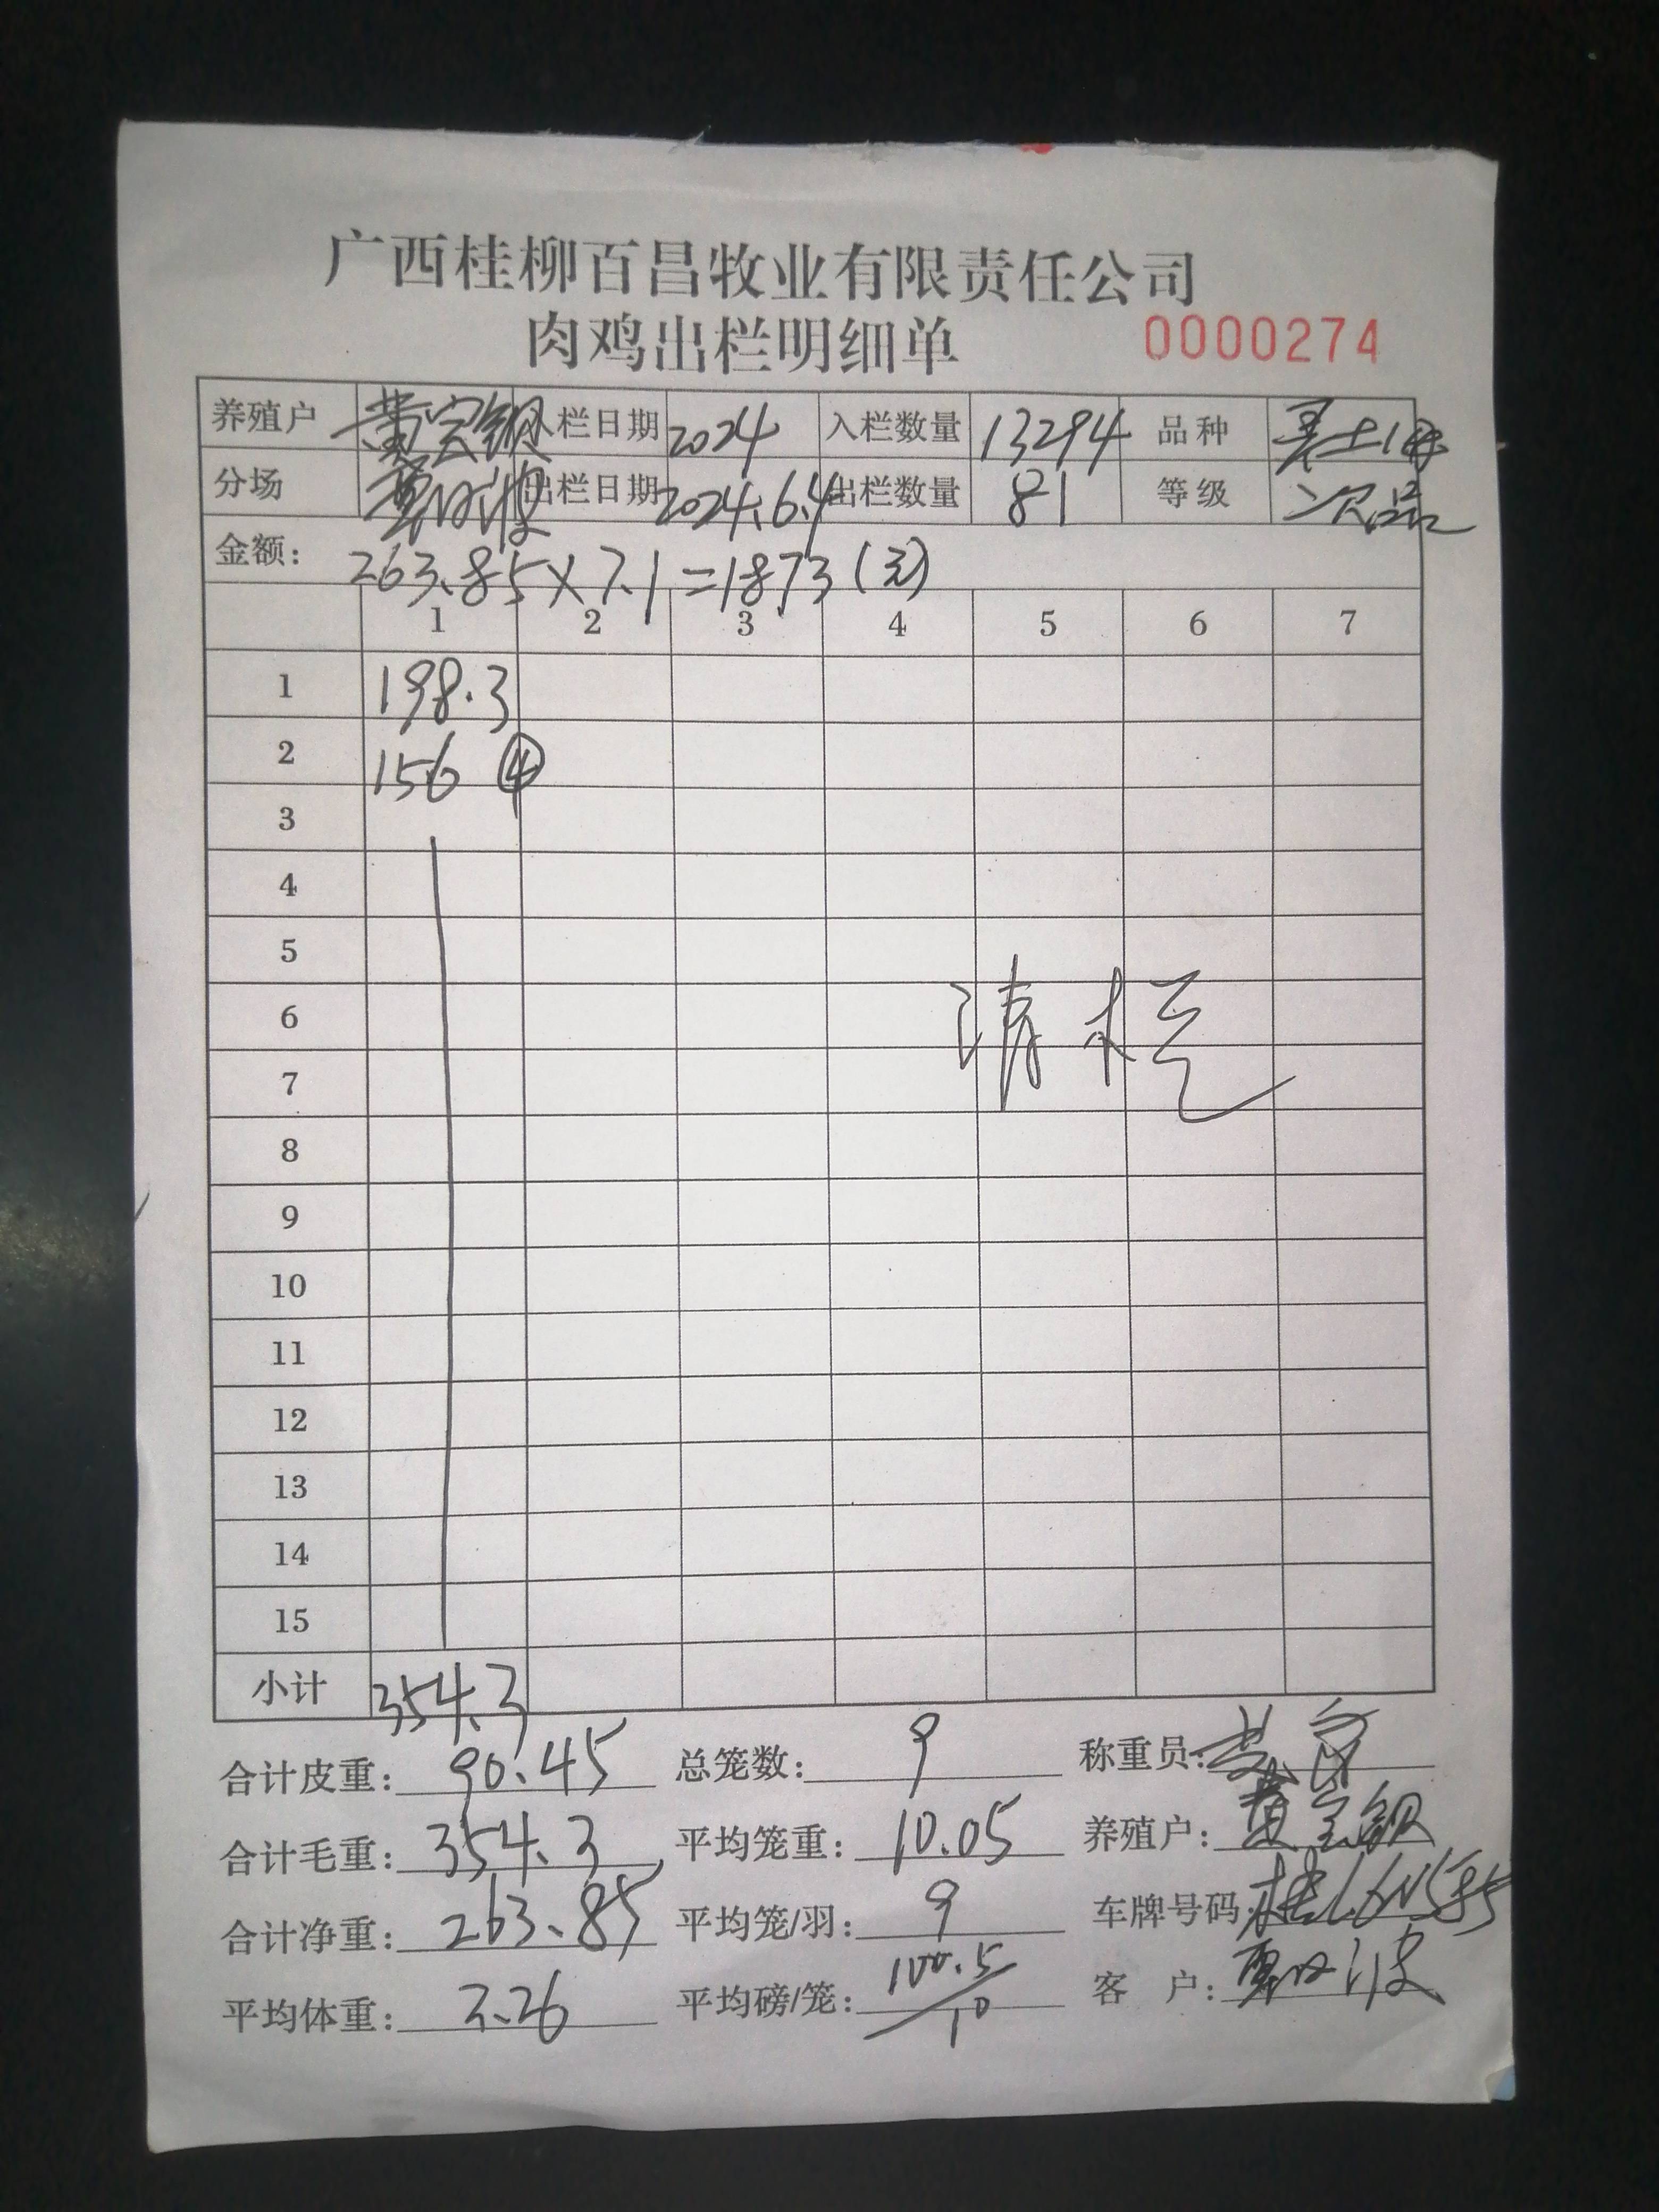 广西桂柳百昌牧业有限责任公司
肉鸡出栏明细单 0000274
养殖户 黄宝钡 入栏日期 2024 入栏数量 13294 品种
分场 出栏日期 2024.6.4 出栏数量 81 等级 次品
金额: 263.85×7.1=1873(元)
1 2 3 4 5 6 7
1 198.3
2 156 ④
3
4
5
6 清栏
7
8
9
10
11
12
13
14
15
小计 354.3
合计皮重: 90.45 总笼数: 9 称重员:
合计毛重: 354.3 平均笼重: 10.05 养殖户: 黄宝钡
合计净重: 263.85 平均笼/羽: 9 车牌号码:
平均体重: 3.26 平均磅/笼: 100.5/10 客 户: